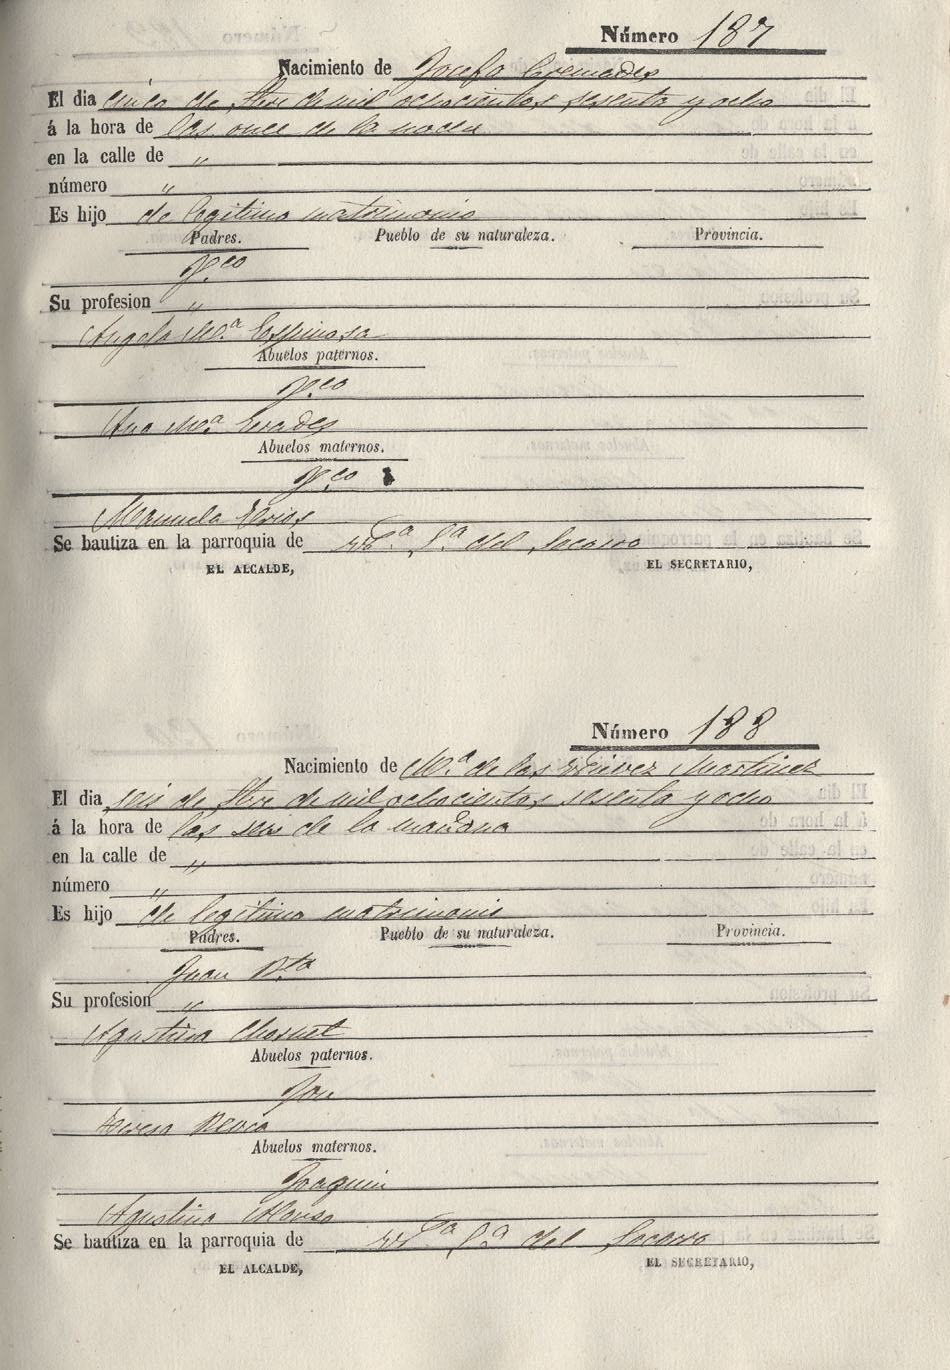 Número 187
Nacimiento de Josefa Cremades
El dia cinco de Sbre de mil ochocientos sesenta y ocho
á la hora de las once de la noche
en la calle de "
número "
Es hijo de legitimo matrimonio
Padres. Pueblo de su naturaleza. Provincia.
Fco
Su profesion "
Angela Mª Espinosa
Abuelos paternos.
Fco
Ana Mª
Abuelos maternos.
Fco
Manuela
Se bautiza en la parroquia de Ntª Sª del Socorro
EL ALCALDE, EL SECRETARIO,
Número 188
Nacimiento de Mª de las Martinez
El dia seis de Sbre de mil ochocientos sesenta y ocho
á la hora de las seis de la mañana
en la calle de "
número "
Es hijo de legitimo matrimonio
Padres. Pueblo de su naturaleza. Provincia.
Juan Bta
Su profesion "
Agustina
Abuelos paternos.
Teresa
Abuelos maternos.
Joaquin
Agustina Alonso
Se bautiza en la parroquia de Ntª Sª del Socorro
EL ALCALDE, EL SECRETARIO,